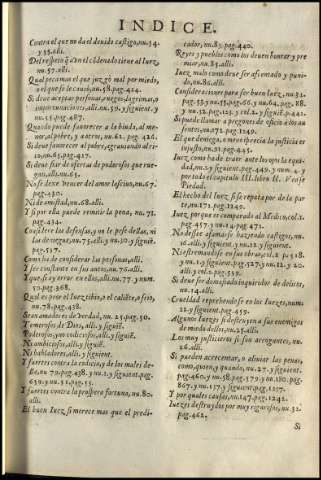 INDICE.
Contra el que no da el deuido castigo, nu. 54.
y 55. alli.
Del respeto q̃ a un cõdenado tiene al Iuez,
nu. 57. alli.
Qual peca mas el que juzgó mal por miedo,
o el que se le causò, nu. 58. pag. 424.
Si deue aceptar personas, ruegos, lagrimas, o
importunaciones, alli, nu. 59. y siguient. y
nu. 55. pag. 487.
Quando puede fauorecer a la biuda, al me-
nor, al pobre, y a otros, nu. 61. pag. 426.
Si deue fauorecer al pobre, agrauiando al ri-
co, nu. 65. pag. 427.
Si deue fiar de ofertas de poderosos que rue-
gan, alli, nu. 65.
No se dexe vencer del amor lasciuo, nu. 67.
pag. 430.
Ni de amistad, nu. 68. alli.
Y si por ella puede remitir la pena, nu. 71.
pag. 432.
Considere las defensas, y no le pese dellas, ni
las deniegue, nu. 75. alli. y nu. 10. y siguiẽ.
pag. 527.
Como ha de considerar las personas, alli.
Y ser constante en sus autos, nu. 76. alli.
Y que si ay error en ellos, alli, nu. 77. y num.
50. pag. 368.
Qual es peor el Iuez tibio, o el calido, o feio,
nu. 78. pag. 438.
Sean amados de verdad, nu. 25. pag. 50.
Temerosos de Dios, alli, y siguiẽ.
Poderosos, y no cudiciosos, alli, y siguiẽ.
Ni ambiciosos, alli, y siguiẽ.
Ni habladores, alli, y siguient.
Y fuertes contra la cudicia, y de los males de-
lla, nu. 70. pag. 438. y nu. 1. y siguient. pag.
639. y nu. 51. pag. 55.
Y fuertes contra la prospera fortuna, nu. 80.
alli.
El buen Iuez si merece mas que el predi-
cador, nu. 83. pag. 440.
Reyes y pueblos como los deuen honrar, y pre
miar, nu. 85. alli.
Iuez malo como deue ser afrentado y puni-
do, nu. 86. alli.
Consideraciones para ser buen Iuez, nu. 31.
pag. 53. nu. 15. pag. 66. y nu. 64. pag. 88.
y nu. 32. pag. 123. y vol. 2. y siguient. p. 441.
Si puede llamar a pregones de oficio a los au
sentes, nu. 172. pag. 1249.
El que deniega, o entretiene la justicia es
injusto, nu. 31. pag. 245.
Iuez, como ha de tratar ante los ojos la equi
dad, nu. 1. y siguient. pag. 449. y num. 4. y
por todo el capitulo III. libro II. Vease
Piedad.
El hecho del Iuez, si se reputa por de la par
te, nu. 8. pag. 1173.
Iuez, porque es comparado al Medico, col. 1.
pag. 457. y nu. 14. pag. 471.
No dessee afamarse haziendo castigos, nu.
16. alli. y siguient. y nu. 22. y siguient.
Ni estremandose en sus obras, col. 2. p. 518.
y nu. 1. y siguient. pag. 527. y nu. 12. y 20.
alli y col. 2. pag. 539.
Si deue ser demasiado inquiridor de delitos,
nu. 14. alli.
Crueldad reprehendese en los Iuezes, num.
22. y siguient. pag. 459.
Algunos Iuezes si desseuyen a sus enemigos
de miedo dellos, nu. 25. alli.
Los muy justicieros si son arrogantes, nu.
26. alli.
Si pueden acrecentar, o aliuiar las penas,
como, quien, y quando, nu. 27. y siguient.
pag. 460. y nu. 58. pag. 179. y nu. 130. pag.
867. y nu. 117. y siguient. pag. 1237.
Y por quales causas, nu. 147. pag. 1242.
Iuezes destruydos por muy rigurosos, nu. 31.
pag. 462.
Si